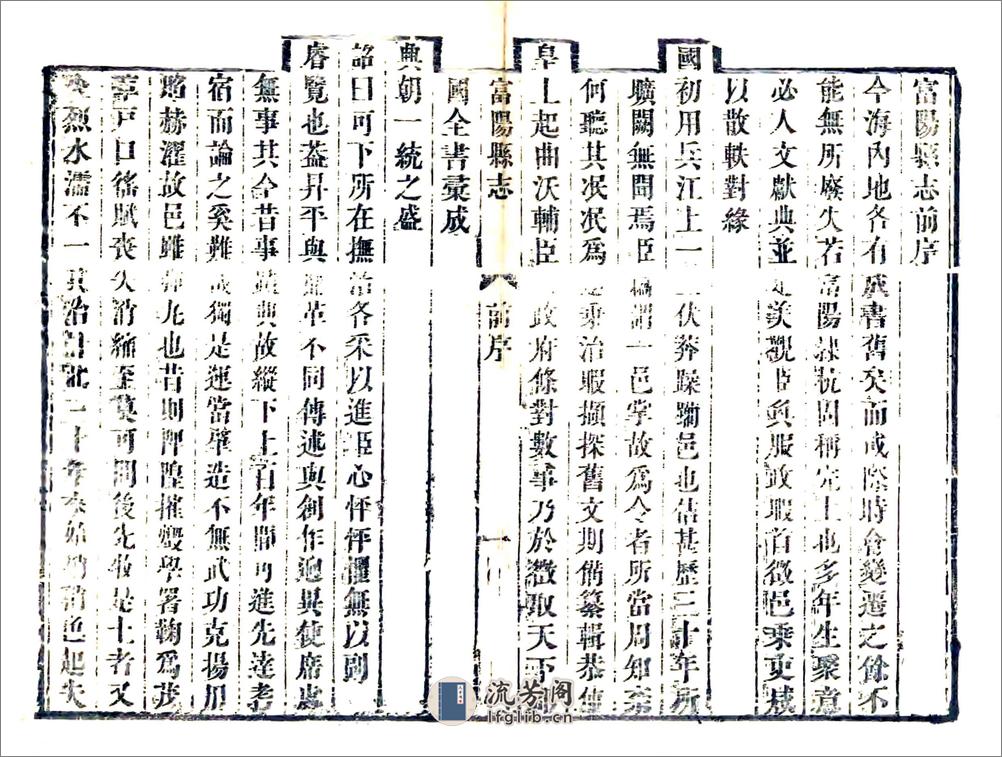 富陽縣志前序
今海內地各有成書舊矣而或際時會變遷之餘不
能無所廢失若富陽隸杭固稱完土也多年生聚意
必人文獻典並足美觀臣與服政暇首徵邑乘更越
以散軼對緣
國初用兵江上一伏莽躁躪邑也估甚歷二十年所
曠闕無聞焉臣竊謂一邑掌故為令者所當周知奈
何聽其泯泯為乘治暇擷探舊文期備纂輯恭值
皇上起曲沃輔臣政府條對數事乃於徵取天下
富陽縣志
前序
一
國全書彙成
典朝一統之盛
詔曰可下所在撫治各采以進臣心怦怦懼無以副
睿覽也蓋昇平與革不同傳述與創作迥異使席處
無事其今昔事蹟典故縱下上百年間可進先達耆
宿而論之奚難獨是運當肇造不無武功克揚用
昭赫濯故邑雖也昔則摧燬學署鞠為茂
草戶口徭賦喪失消緬至莫可問後先牧是土者又
烈水濡不一其治
流芳阁
lfglib.cn